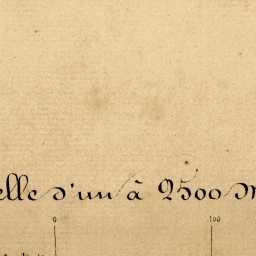 elle d'un à 2500 m
0 100